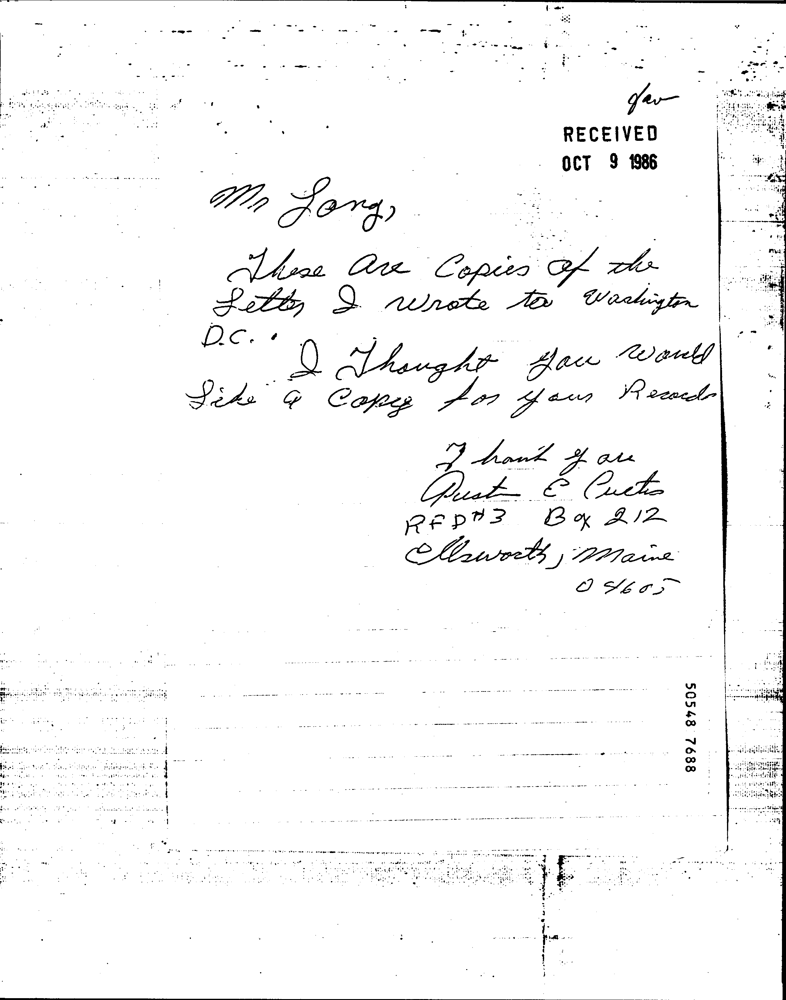 fav
RECEIVED
OCT 9 1986
Mr Long,
These Are Copies of the
Letter I wrote to Washington
D.C. .
I Thought you would
Like a Copy for your Records
Thank you
E Curtis
RFD#3 Box 212
Ellsworth, Maine
04605
50548 7688